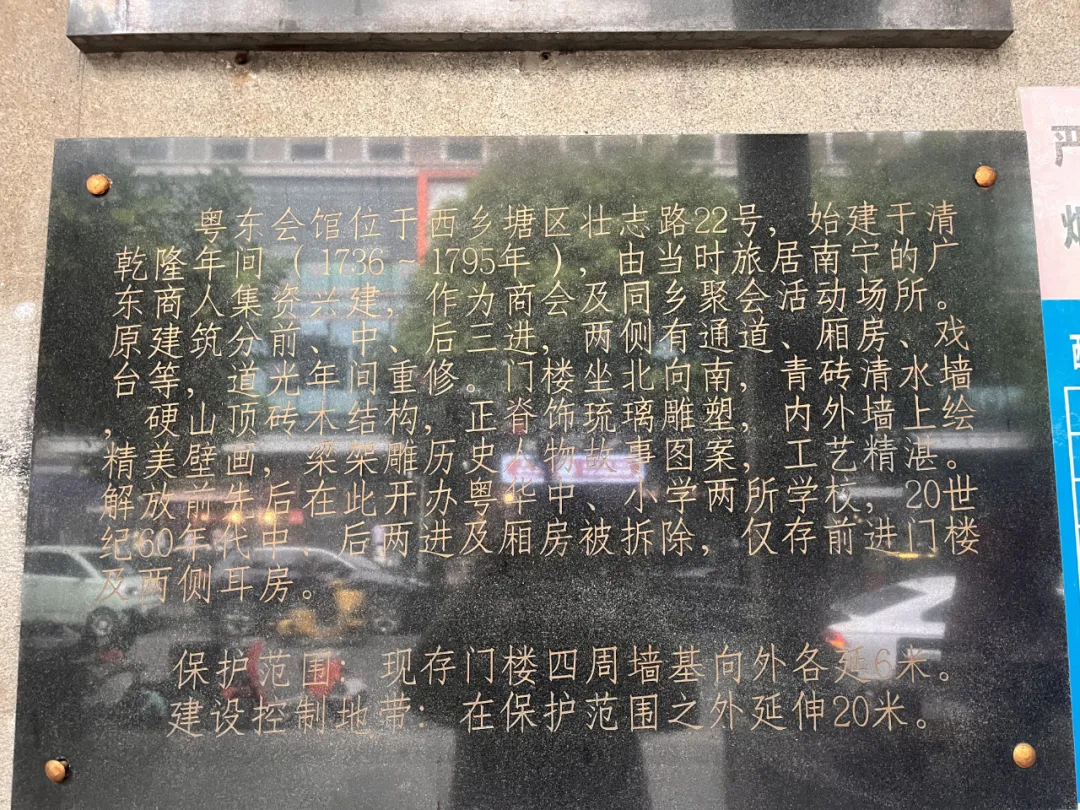 粤东会馆位于西乡塘区壮志路22号，始建于清
乾隆年间（1736～1795年），由当时旅居南宁的广
东商人集资兴建，作为商会及同乡聚会活动场所。
原建筑分前、中、后三进，两侧有通道、厢房、戏
台等，道光年间重修。门楼坐北向南，青砖清水墙
，硬山顶砖木结构，正脊饰琉璃雕塑，内外墙上绘
精美壁画，梁架雕历史人物故事图案，工艺精湛。
解放前先后在此开办粤华中、小学两所学校，20世
纪60年代中、后两进及厢房被拆除，仅存前进门楼
及两侧耳房。
保护范围：现存门楼四周墙基向外各延6米。
建设控制地带：在保护范围之外延伸20米。
严